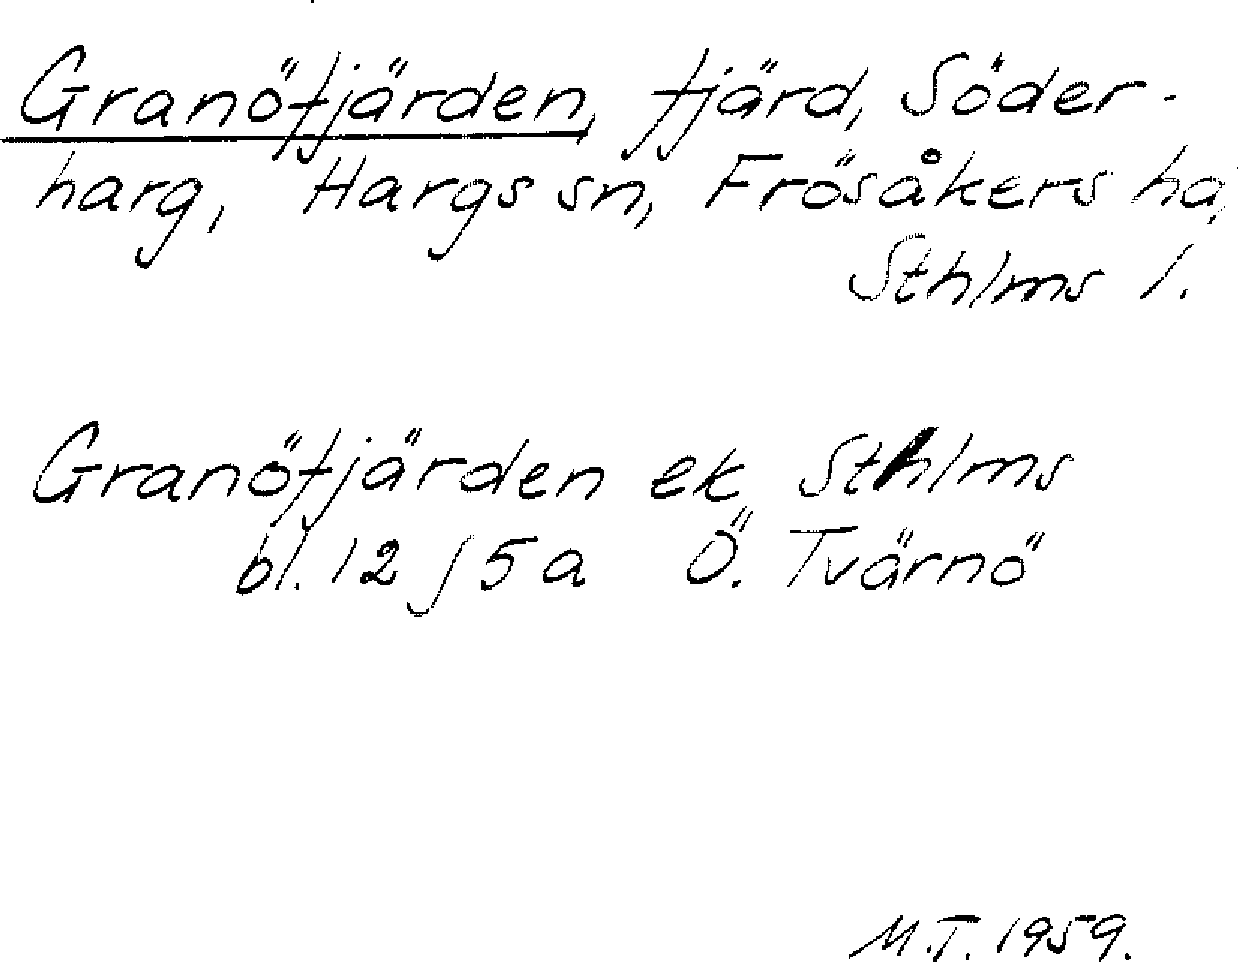 Granöfjärden, fjärd, Söder-
harg, Hargs sn, Frösåkers hd,
Sthlms l.
Granöfjärden ek Sthlms
bl. 12 J 5 a Ö. Tvärnö
M.T. 1959.